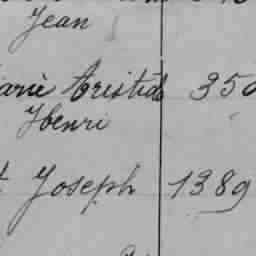 Jean
arie Aristide 350
Henri
t Joseph 1389